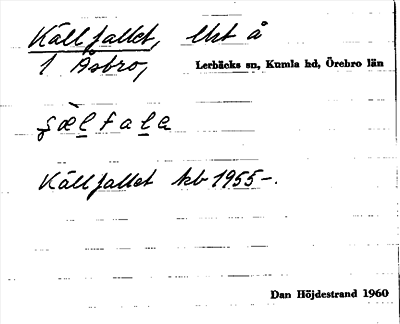 Källfallet, lht å
1 Åsbro,
Lerbäcks sn, Kumla hd, Örebro län
Källfallet kb 1955-.
Dan Höjdestrand 1960